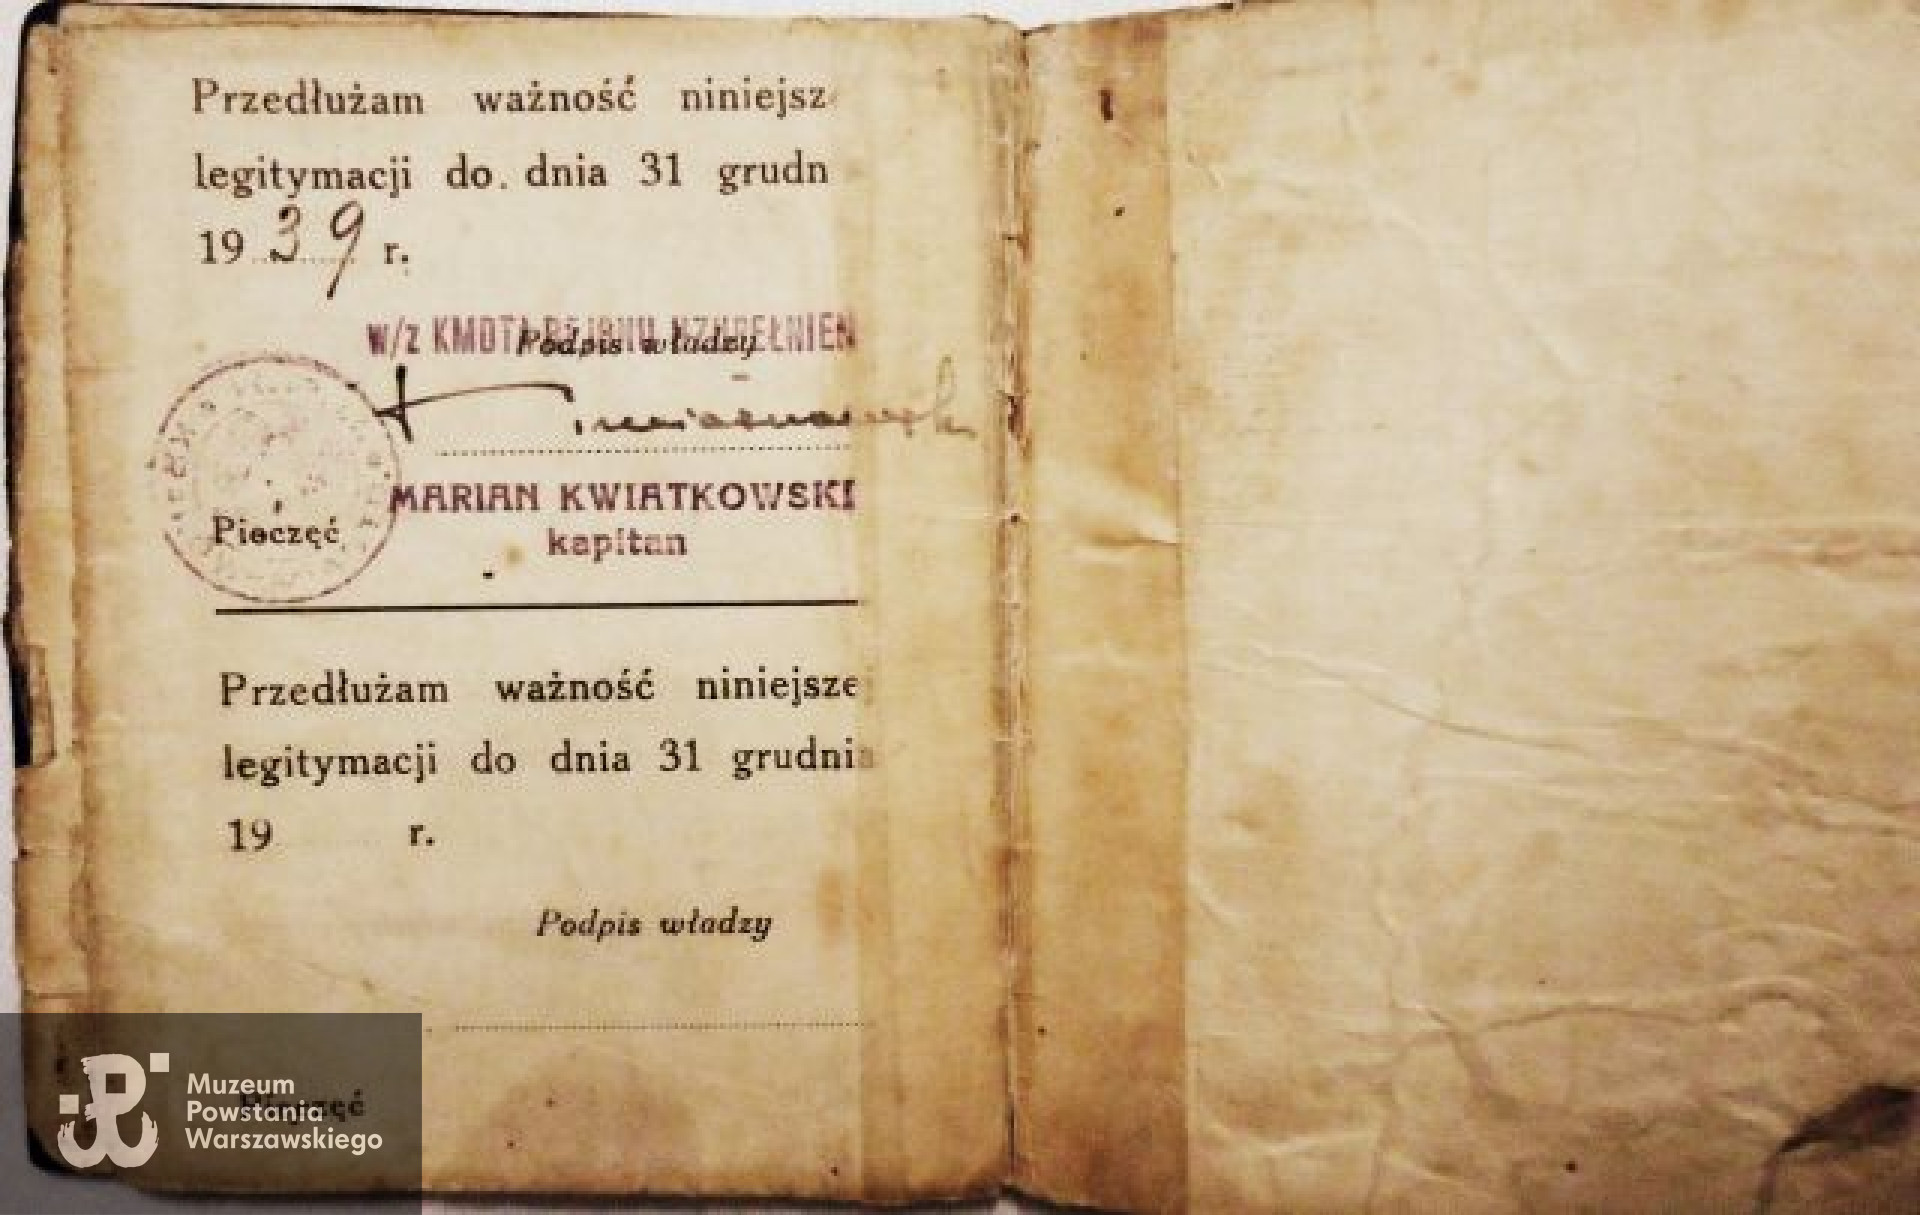 Przedłużam ważność niniejsze
legitymacji do dnia 31 grudn
1939 r.
w/z KMDTA REJONU UZUPEŁNIEŃ
Podpis władzy
MARIAN KWIATKOWSKI
Pieczęć
kapitan
Przedłużam ważność niniejszej
legitymacji do dnia 31 grudnia
19 r.
Podpis władzy
Pieczęć
Muzeum
Powstania
Warszawskiego